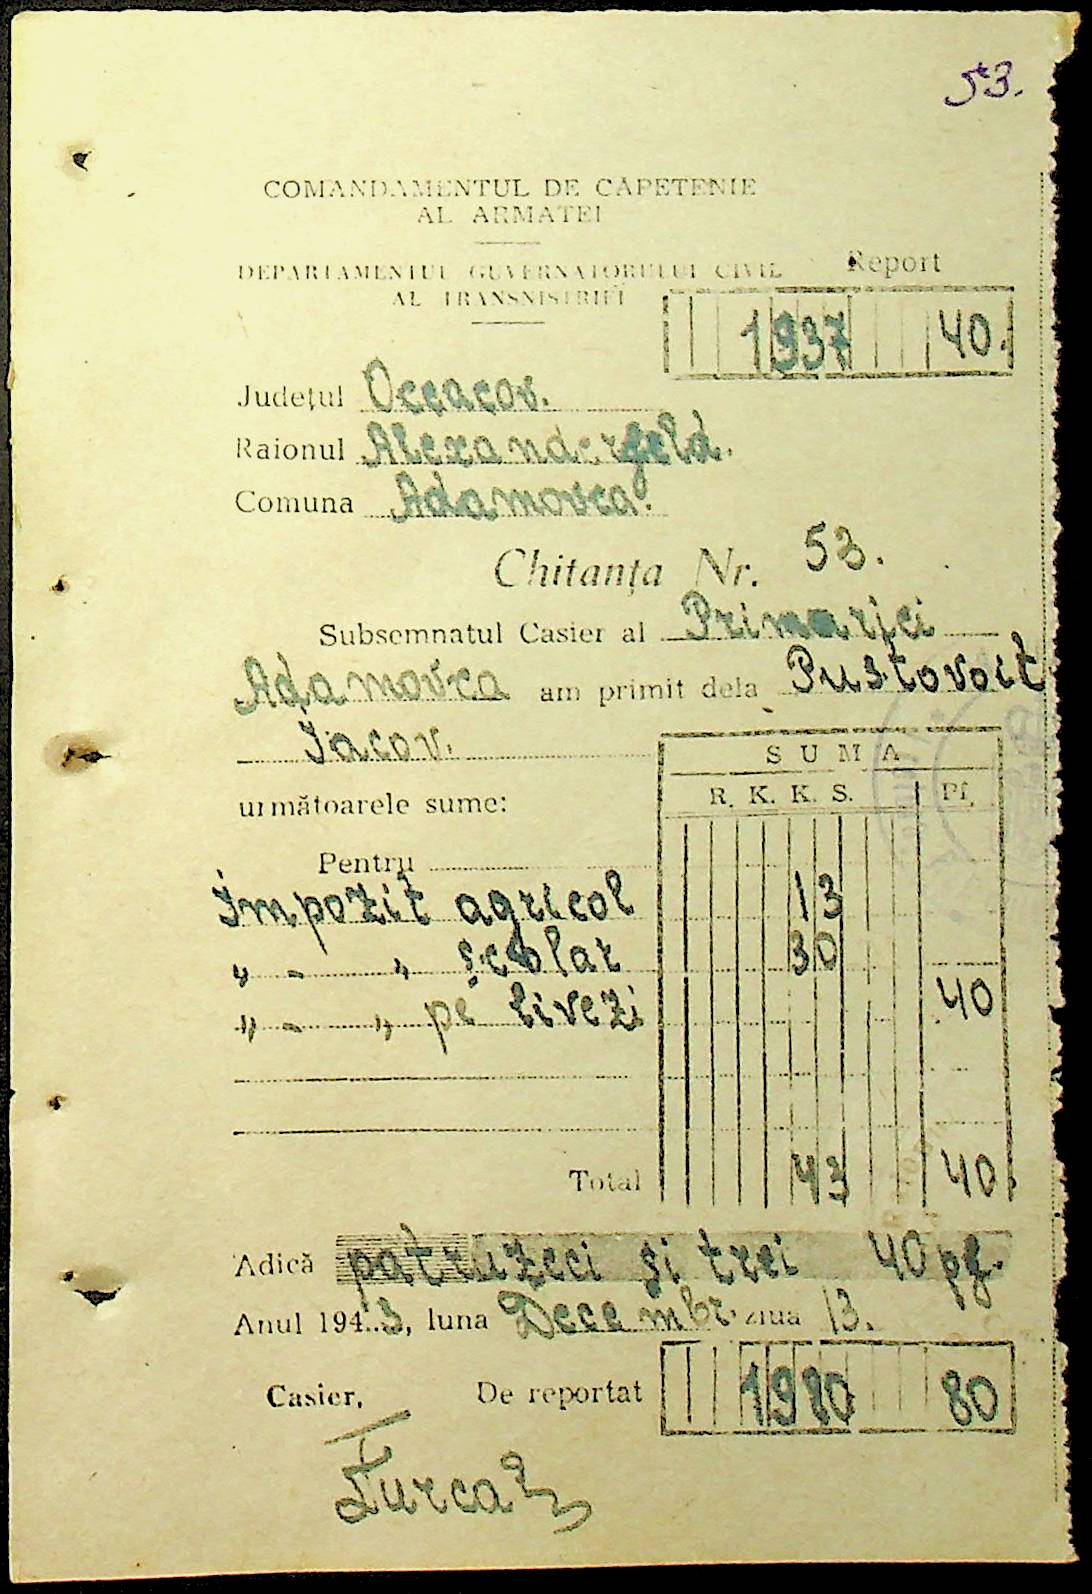 53.
COMANDAMENTUL DE CAPETENIE
AL ARMATEI
DEPARTAMENTUL GUVERNATORULUI CIVIL
AL TRANSNISTRIEI
Report
1937 40.
Județul Oceacov.
Raionul Alexanderfeld.
Comuna Adamovca.
Chitanța Nr. 53.
Subsemnatul Casier al Primariei
Adamovca am primit dela Pustovoit
Iacov.
SUMA
următoarele sume: R. K. K. S. Pf.
Pentru
Impozit agricol 13
" - " școlar 30
" - " pe livezi 40
Total 43 40
Adică patruzeci și trei 40 pf.
Anul 1943, luna Decembr ziua 13.
Casier, De reportat 1980 80